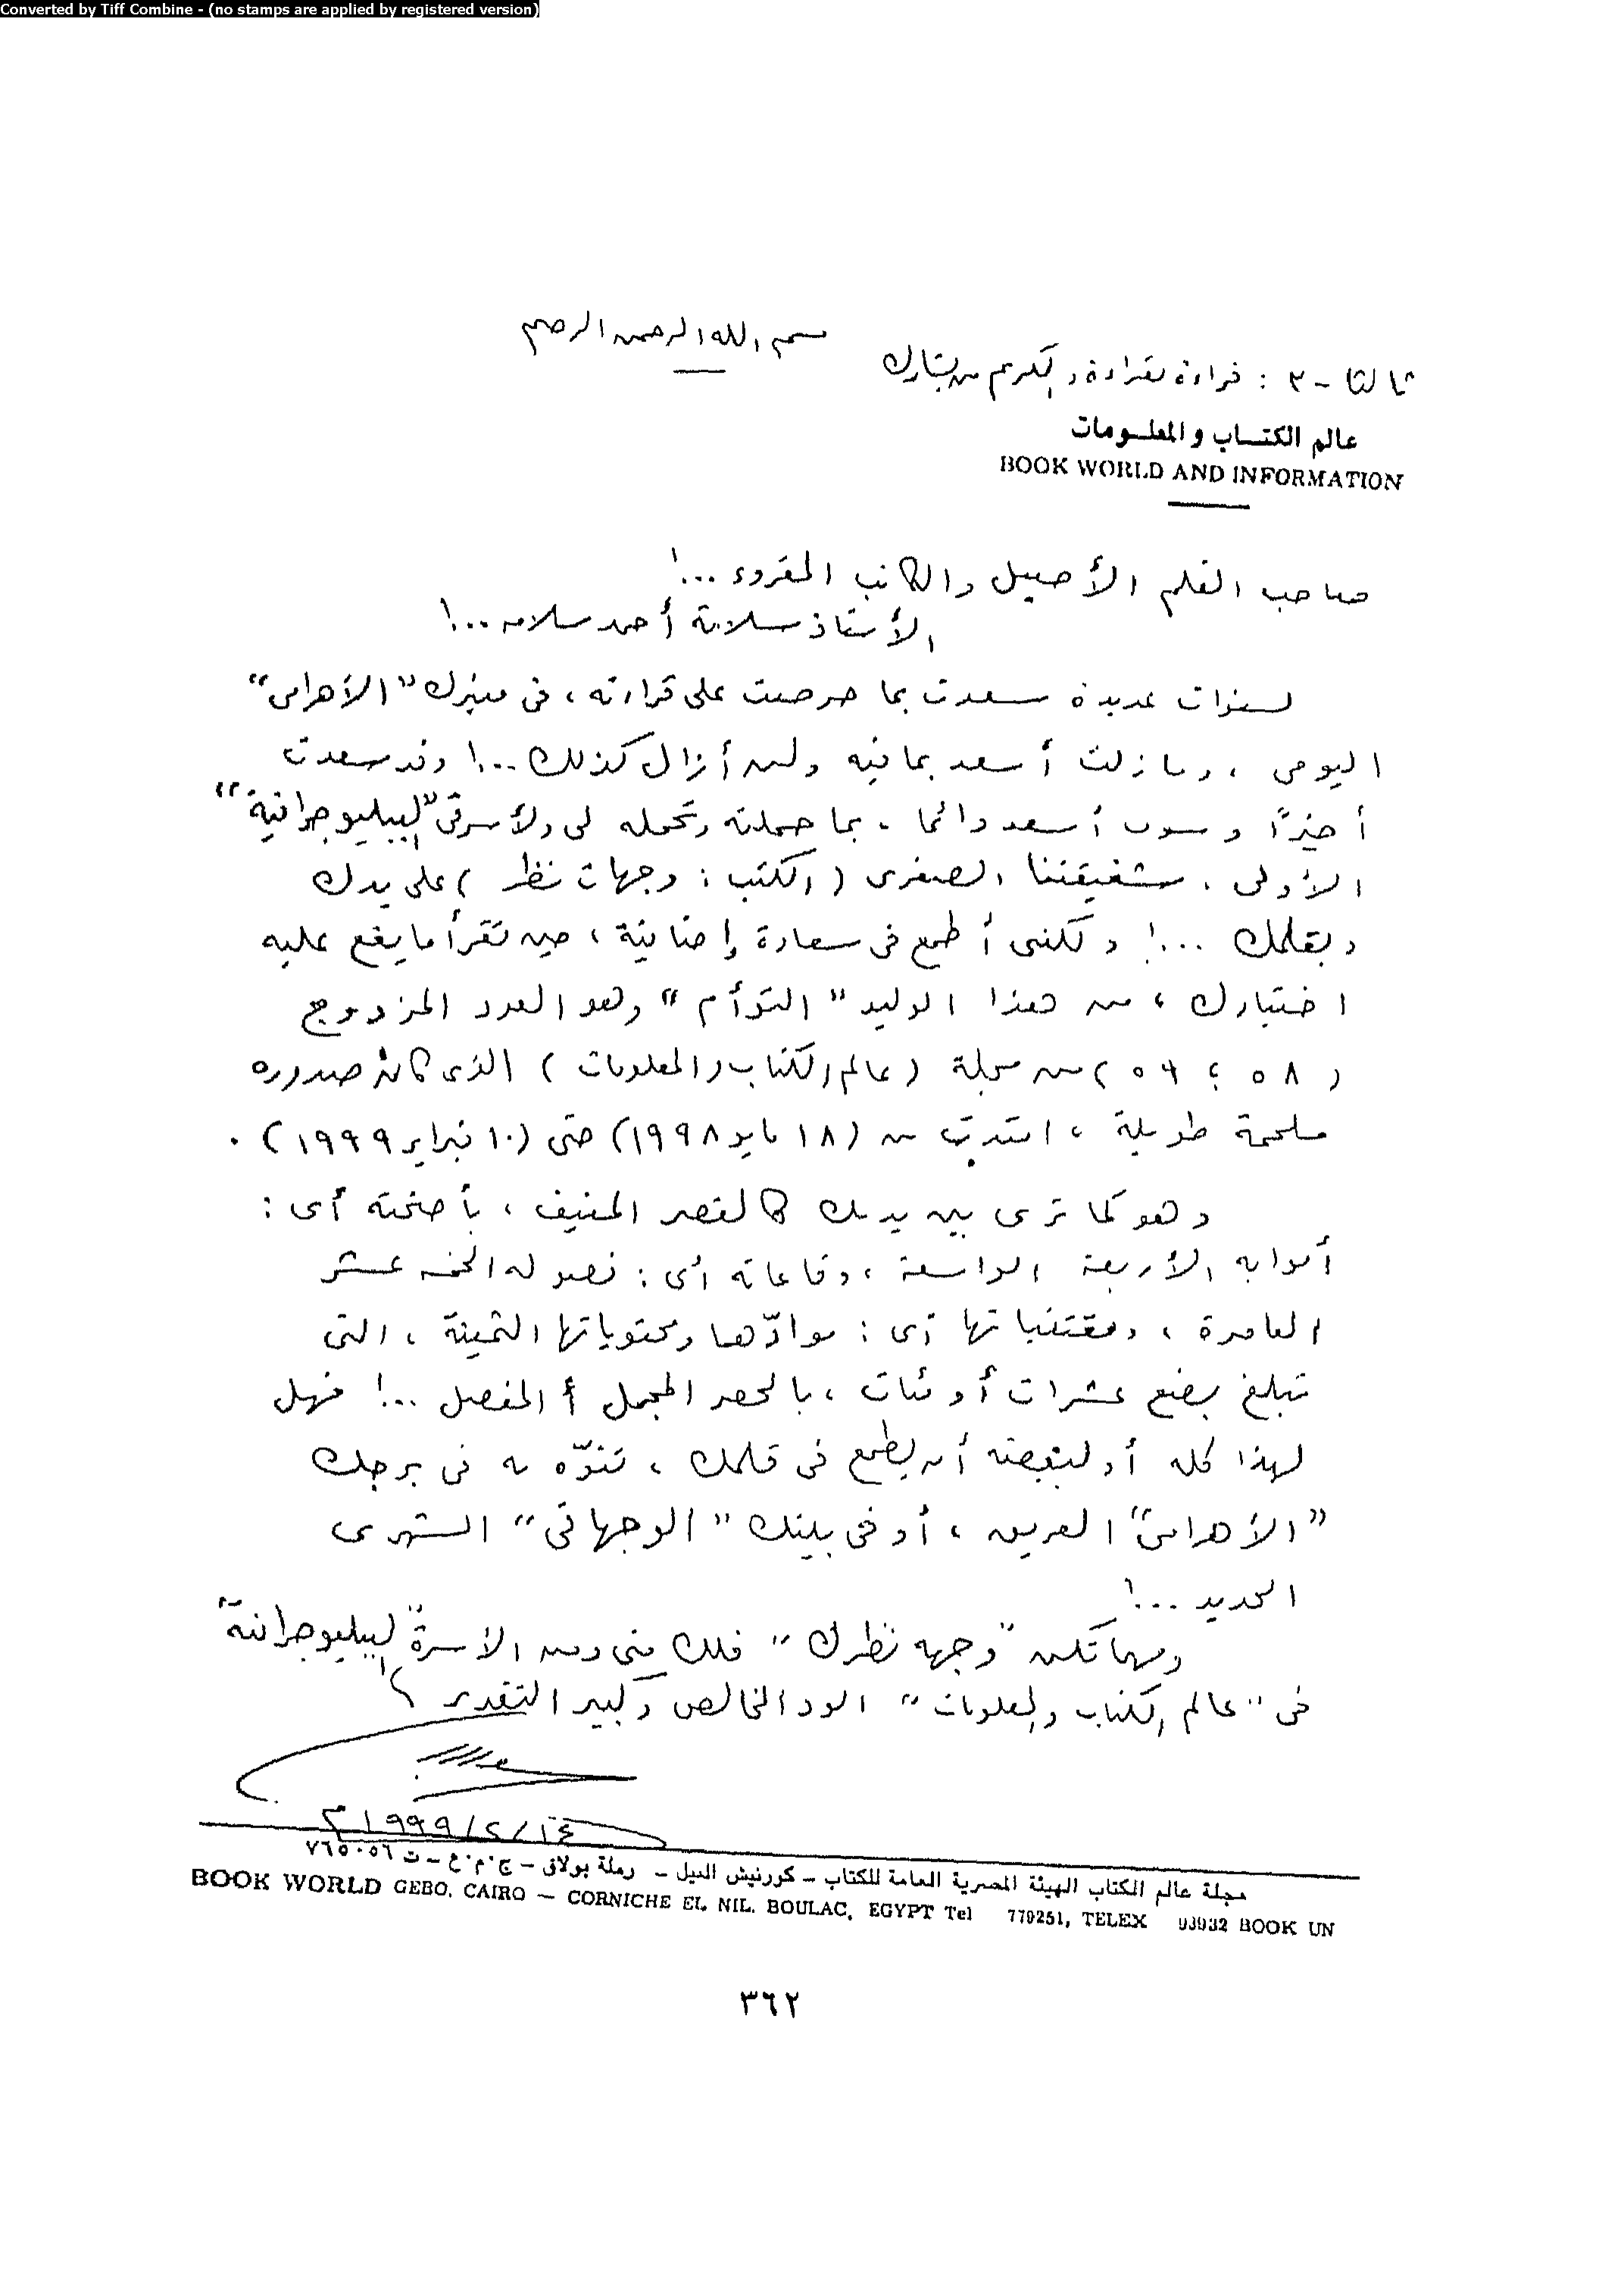 Converted by Tiff Combine - (no stamps are applied by registered version)
بسم الله الرحمن الرحيم
ثالثا - ٣ : قراءة بقراءة والكريم من يشارك
عالم الكتــاب والمعلـومات
BOOK WORLD AND INFORMATION
صاحب القلم الأصيل والكاتب المقروء ...!
الأستاذ سلامة أحمد سلامه ...!
لسنوات عديدة سعدت بما حرصت على قراءته ، فى منبرك "الأهرامى"
اليومى ، ومازلت أسعد بما فيه ولن أزال كذلك ...! وقد سعدت
أخيرًا وسوف أسعد دائما ، بما حملته وتحمله لى ولأسرتى "الببليوجرافية"
الأولى ، شقيقتنا الصغرى ( الكتب : وجهات نظر ) على يدك
وبقلمك ...! ولكنى أطمع فى سعادة إضافية ، حين تقرأ ما يقع عليه
اختيارك ، من هذا الوليد " التوأم " وهو العدد المزدوج
( ٥٨ ؛ ٥٩ ) من مجلة ( عالم الكتاب والمعلومات ) الذى كان صدوره
ملحمة طويلة ، امتدت من (١٨ مايو ١٩٩٨) حتى (١٠ فبراير ١٩٩٩) .
وهو كما ترى بين يديك كالقصر المنيف ، بأجنحته أى :
أبوابه الأربعة الواسعة ، وقاعاته أى : فصوله الخمسة عشر
العامرة ، ومقتنياتها أى : موادّها ومحتوياتها الثمينة ، التى
تبلغ بضع عشرات أو مئات ، بالحصر المجمل أو المفصل ...! فهل
لهذا كله أو لبعضه أن يطمع فى قلمك ، تنوّه به فى برجك
"الأهرامى" العريق ، أو فى بيتك "الوجهاتى" الشهرى
الجديد ...!
ومهما تكن "وجهة نظرك" فلك منى ومن الأسرة "الببليوجرافية"
فى "عالم الكتاب والمعلومات" الود الخالص وكبير التقدير
١٤/٢/١٩٩٩م
مجلة عالم الكتاب الهيئة المصرية العامة للكتاب - كورنيش النيل - رملة بولاق - ج.م.ع - ت ٧٦٥٠٥٦
BOOK WORLD GEBO, CAIRO — CORNICHE EL NIL. BOULAC, EGYPT Tel 779251, TELEX 93932 BOOK UN
٣٦٢